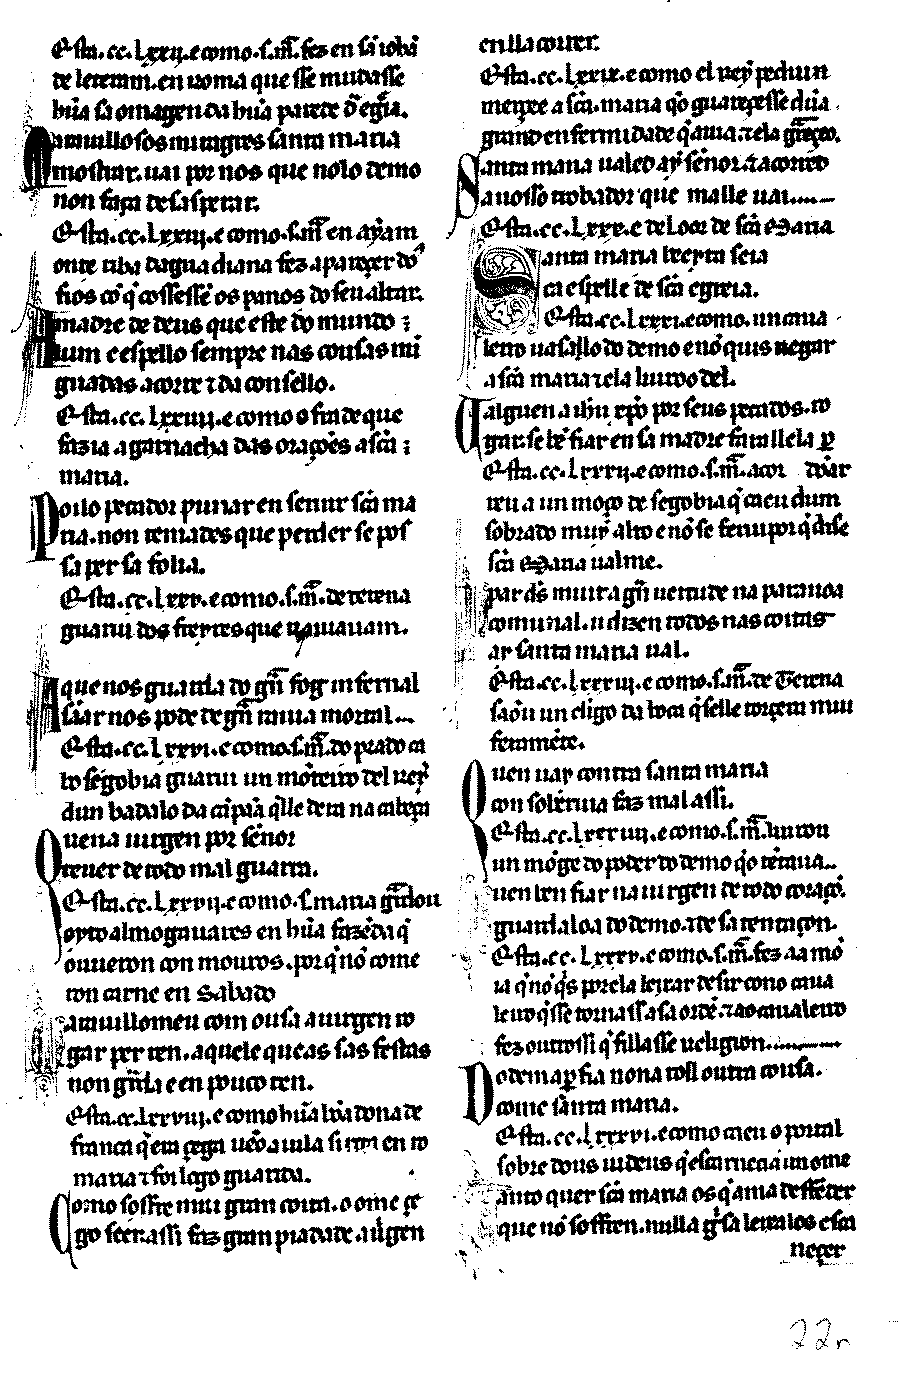 Esta .cc.Lxxij. e como .s.m̄. fez en sā iohā
de leteran. en roma que sse mudasse
hūa sa omagen da hūa parete dō egr̄a.
Marauillosos miragres santa maria
mostrar. uai por nos que nolo demo
non faça desasperar.
Esta .cc.Lxxiij. e como .s.m̄ en ayam
onte riba dagua diana fez aparecer do⁹
fios cō q̄ cosessē os panos do seu altar.
A madre de deus que este do mundo ;
lum e espello sempre nas cousas mi
guadas acorre ⁊ da consello.
Esta .cc.Lxxiiij. e como o frade que
fazia a garnacha das orações a scā ;
maria.
Poilo pecador punar en seruir scā ma
ria. non temades que perder se pos
sa per sa folia.
Esta .cc.Lxxv. e como .s.m̄. de terena
guariu dos freyres que rauiauam.
A que nos guarda do grā fog infernal
sāar nos pode de grā rauia mortal
Esta .cc.Lxxvi. e como .s.m̄. do prado ca
bo segobia guariu un mōteiro del rey
dun badalo da cāpāa q̄lle dera na cabeça
Quen a uirgen por sēnor
teuer de todo mal guarra.
Esta .cc.Lxxvij. e como .s. maria guardou
oyto almogauares en hūa fazēda q̄
ouueron con mouros. por q̄ nō come
ron carne en sabado
Marauillome eu com ousa a uirgen ro
gar per ren. aquele que as sas festas
non guarda e en pouco ten.
Esta .cc.Lxxviij. e como hūa bōa dona de
franca q̄ era cega uēo a uila sirga en ro
maria ⁊ foi logo guarida.
Como sofre mui gran coita. o ome çe
go seer. assi faz gran piadade a uirgen
en lla correr.
Esta .cc.Lxxix. e como el rey pediun
merçee a scā. maria q̄ o guareçesse dūa
grand enfermidade q̄ auia. ⁊ ela guareçeo.
Santa maria ualed ay sēnor. ⁊ acorred
a uosso trobador que malle uai
Esta .cc.Lxxx. e de loor de scā Maria
Santa maria beeyta seia
ca espelle de scā egreia.
Esta .cc.Lxxxi. e como. un caua
leiro uasallo do demo e nō quis negar
a scā maria ⁊ ela liuroo del.
U alguen a ihū xp̄o por seus pecados. ne
gar. se bē fiar en sa madre fara llela p̄
Esta .cc.Lxxxij. e como .s.m̄. acor
reu a un moço de segobia q̄ caeu dum
sobrado muy alto e nō se feriu por q̄ disse
scā Maria ualme.
Par ds̄ muita grā uertude na pararoa
comunal. u dizen todos nas coitas
ay santa maria ual.
Esta .cc.Lxxxiij. e como .s.m̄. de Terena
sāou un cligo da boca q̄ selle torçera mui
feramēte.
Quen uay contra santa maria
con soberuia faz mal assi.
Esta .cc.Lxxxiiij. e como .s.m̄. liurou
un mōge do poder do demo q̄ o tētaua
Quen ben fiar na uirgen de todo coraçō.
guardaloa do demo. ⁊ de sa tentaçon.
Esta .cc.Lxxxv. e como .s.m̄. fez aa mō
ia q̄ nō q̄s por ela leixar desir cono caua
leiro q̄sse tornass a sa ordē. ⁊ ao caualeiro
fez outrossi q̄ fillasse religion
Podem a p̄fia nona toll outra cousa.
come santa maria.
Esta .cc.Lxxxvi. e como caeu o portal
sobre dous iudeus q̄ escarnecīa un ome
Tanto quer scā maria os q̄ ama deffēder
que nō soffren. nulla gisa leixalos escar
neçer
22r